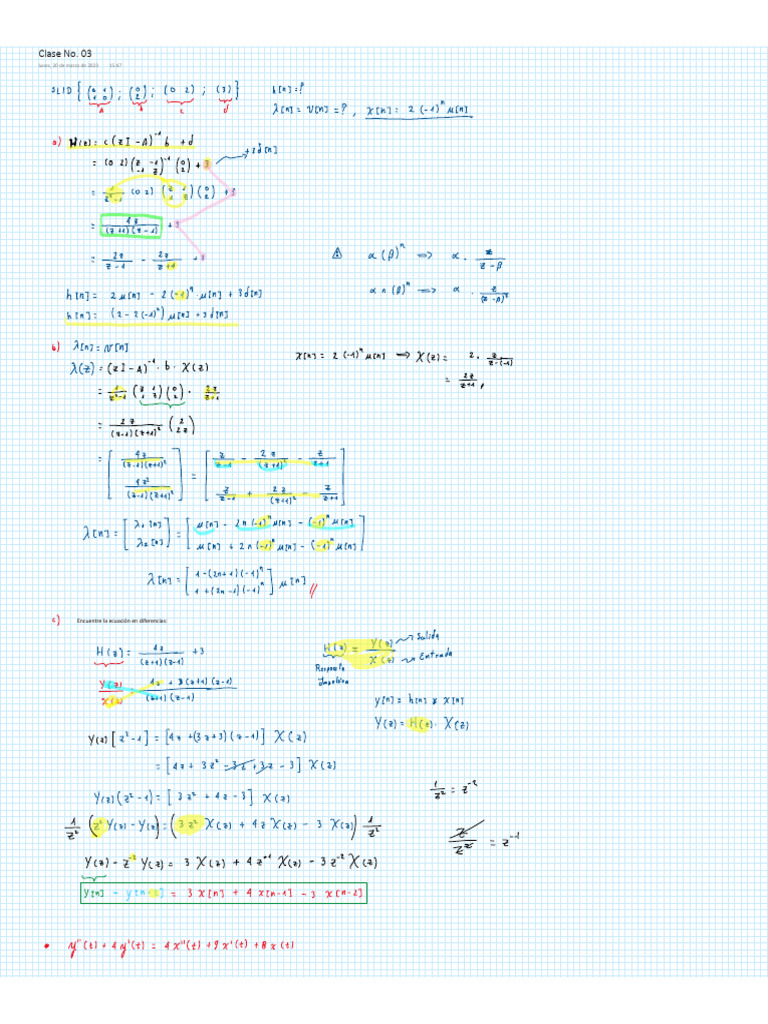 Clase No. 03
lunes, 20 de marzo de 2023 15:47
SLID { (0 1 / 1 0) ; (0 / 2) ; (0 2) ; (3) } h[n]=?
A b c d λ[n] = v[n] =? , x[n] = 2(-1)ⁿ μ[n]
a) H(z) = c(zI-A)⁻¹ b + d
= (0 2) (z -1 / -1 z)⁻¹ (0 / 2) + 3 → +3δ[n]
= 1/(z²-1) (0 2) (z 1 / 1 z) (0 / 2) + 3
= 4z/((z+1)(z-1)) + 3
= 2z/(z-1) - 2z/(z+1) + 3
⚠ α(β)ⁿ ⟹ α · z/(z-β)
h[n] = 2μ[n] - 2(-1)ⁿ·μ[n] + 3δ[n]
α n (β)ⁿ ⟹ α · z/(z-β)²
h[n] = (2-2(-1)ⁿ) μ[n] + 3δ[n]
b) λ[n] = v[n]
λ(z) = (zI-A)⁻¹ · b · X(z)
x[n] = 2(-1)ⁿ μ[n] ⟹ X(z) = 2 · z/(z-(-1))
= 2z/(z+1)
= 1/(z²-1) (z 1 / 1 z) (0 / 2) · 2z/(z+1)
= 2z/((z-1)(z+1)²) (2 / 2z)
= [4z/((z-1)(z+1)²) / 4z²/((z-1)(z+1)²)] = [z/(z-1) - 2z/(z+1)² - z/(z+1) / z/(z-1) + 2z/(z+1)² - z/(z+1)]
λ[n] = [λ₁[n] / λ₂[n]] = [μ[n] - 2n(-1)ⁿ μ[n] - (-1)ⁿ μ[n] / μ[n] + 2n(-1)ⁿ μ[n] - (-1)ⁿ μ[n]]
λ[n] = [1-(2n+1)(-1)ⁿ / 1+(2n-1)(-1)ⁿ] μ[n] //
c) Encuentre la ecuación en diferencias:
H(z) = 4z/((z+1)(z-1)) + 3
H(z) = Y(z)/X(z) → Salida → Entrada
Respuesta Impulsiva
Y(z)/X(z) = (4z + 3(z+1)(z-1))/((z+1)(z-1))
y[n] = h[n] * x[n]
Y(z) = H(z) · X(z)
Y(z)[z²-1] = [4z+(3z+3)(z-1)] X(z)
= [4z + 3z² - 3z + 3z - 3] X(z)
1/z² = z⁻²
Y(z)(z²-1) = [3z² + 4z - 3] X(z)
1/z² (z² Y(z) - Y(z)) = (3z² X(z) + 4z X(z) - 3 X(z)) 1/z²
z/z² = z⁻¹
Y(z) - z⁻² Y(z) = 3 X(z) + 4z⁻¹ X(z) - 3z⁻² X(z)
y[n] - y[n-2] = 3 x[n] + 4 x[n-1] - 3 x[n-2]
• y''(t) + 4y'(t) = 4x''(t) + 9x'(t) + 8x(t)